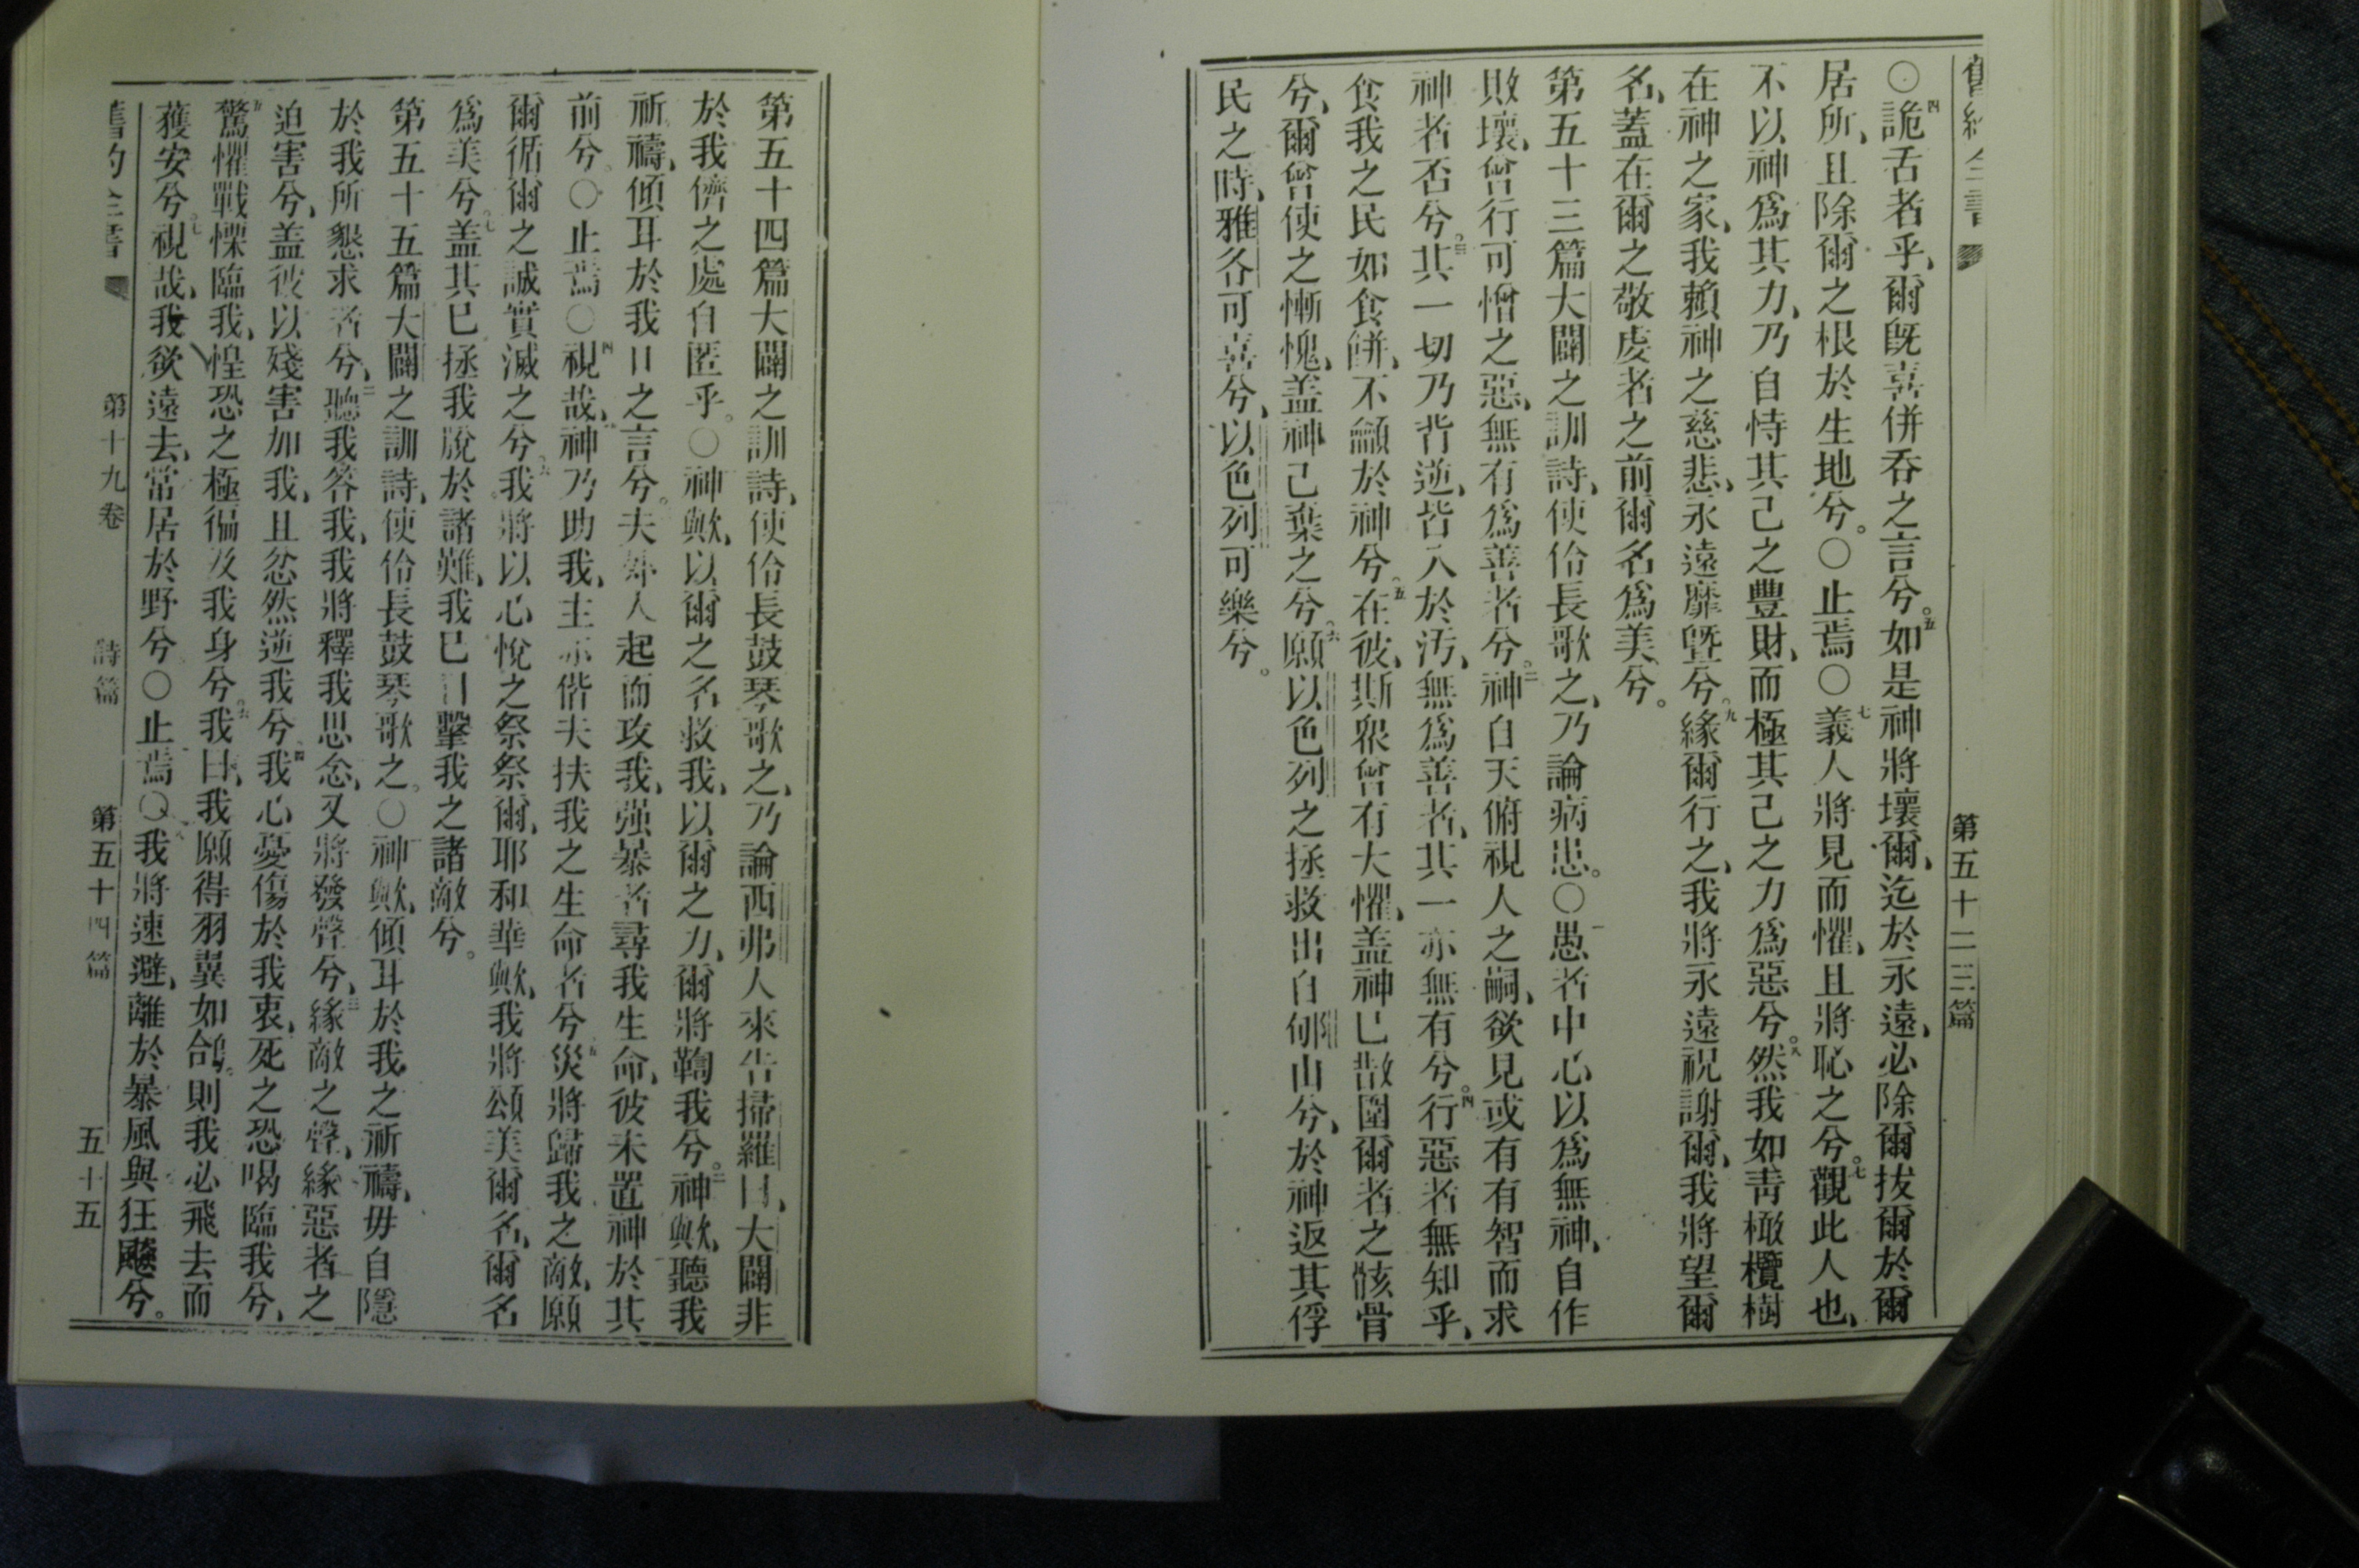 第五十二三篇
○四詭舌者乎、爾旣喜併吞之言兮。五如是神將壞爾、迄於永遠、必除爾拔爾於爾
居所、且除爾之根於生地兮。○止焉○七義人將見而懼、且將恥之兮。七觀此人也、
不以神爲其力、乃自恃其己之豐財、而極其己之力爲惡兮。八然我如靑橄欖樹
在神之家、我賴神之慈悲、永遠靡曁兮。九緣爾行之、我將永遠祝謝爾、我將望爾
名、蓋在爾之敬虔者之前爾名爲美兮。
第五十三篇大闢之訓詩、使伶長歌之、乃論病患。○一愚者中心以爲無神、自作
敗壞、曾行可憎之惡、無有爲善者兮。二神自天俯視人之嗣、欲見或有有智而求
神者否兮。三其一切乃背逆、皆入於汚、無爲善者、其一亦無有兮。四行惡者無知乎、
食我之民如食餅、不籲於神兮。五在彼、斯衆曾有大懼、盖神已散圍爾者之骸骨
兮、爾曾使之慚愧、盖神己棄之兮。六願以色列之拯救出自郇山兮、於神返其俘
民之時、雅各可喜兮、以色列可樂兮。
第五十四篇大闢之訓詩、使伶長鼓琴歌之、乃論西弗人來告掃羅曰、大闢非
於我儕之處自匿乎。○一神歟、以爾之名救我、以爾之力、爾將鞫我兮。二神歟、聽我
祈禱、傾耳於我口之言兮。夫外人起而攻我、强暴者尋我生命、彼未置神於其
前兮。○止焉○四視哉、神乃助我、主亦偕夫扶我之生命者兮。五災將歸我之敵、願
爾循爾之誠實滅之兮。六我將以心悅之祭祭爾、耶和華歟、我將頌美爾名、爾名
爲美兮。七盖其已拯我脫於諸難、我已目擊我之諸敵兮。
第五十五篇大闢之訓詩、使伶長鼓琴歌之。○一神歟、傾耳於我之祈禱、毋自隱
於我所懇求者兮、二聽我答我、我將釋我思念、又將發聲兮、三緣敵之聲、緣惡者之
迫害兮、盖彼以殘害加我、且忿然逆我兮。四我心憂傷於我衷、死之恐喝臨我兮、
五驚懼戰慄臨我、惶恐之極徧及我身兮。六我曰、我願得羽翼如鴿、則我必飛去而
獲安兮。七視哉、我欲遠去、常居於野兮。○止焉○八我將速避、離於暴風與狂颷兮。
第十九卷 詩篇 第五十四篇 五十五